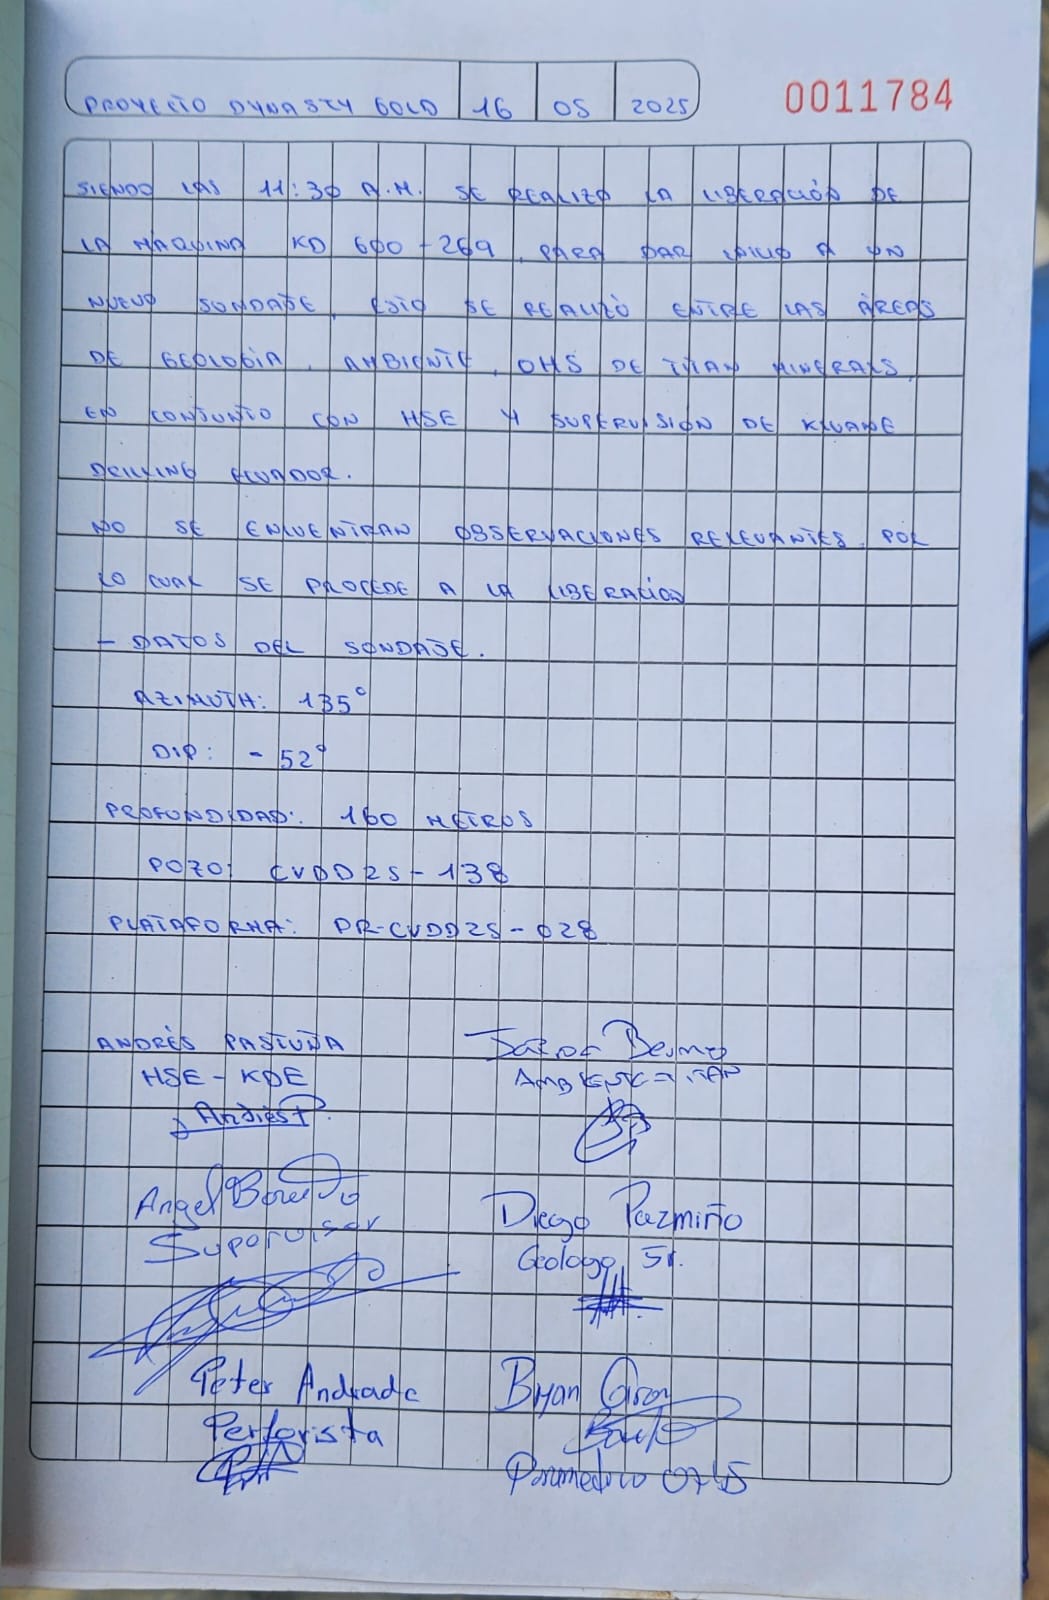 PROYECTO DYNASTY GOLD 16 05 2025
0011784
SIENDO LAS 11:30 A.M. SE REALIZO LA LIBERACIÓN DE
LA MAQUINA KD 600-269, PARA DAR INICIO A UN
NUEVO SONDAJE, ESTO SE REALIZÓ ENTRE LAS ÁREAS
DE GEOLOGÍA, AMBIENTE, OHS DE TITAN MINERALS,
EN CONJUNTO CON HSE Y SUPERVISION DE KLUANE
DRILLING ECUADOR.
NO SE ENCUENTRAN OBSERVACIONES RELEVANTES, POR
LO CUAL SE PROCEDE A LA LIBERACIÓN
- DATOS DEL SONDAJE.
AZIMUTH: 135°
DIP: - 52°
PROFUNDIDAD: 160 METROS
POZO: CVDD25-138
PLATAFORMA: PR-CVDD25-028
ANDRÉS PASTUÑA
HSE - KDE
Andrés P.
Ambiente
Angel
Supervisor
Diego Pazmiño
Geologo Sr.
Peter Andrade
Perforista
Bryan
Paramedico